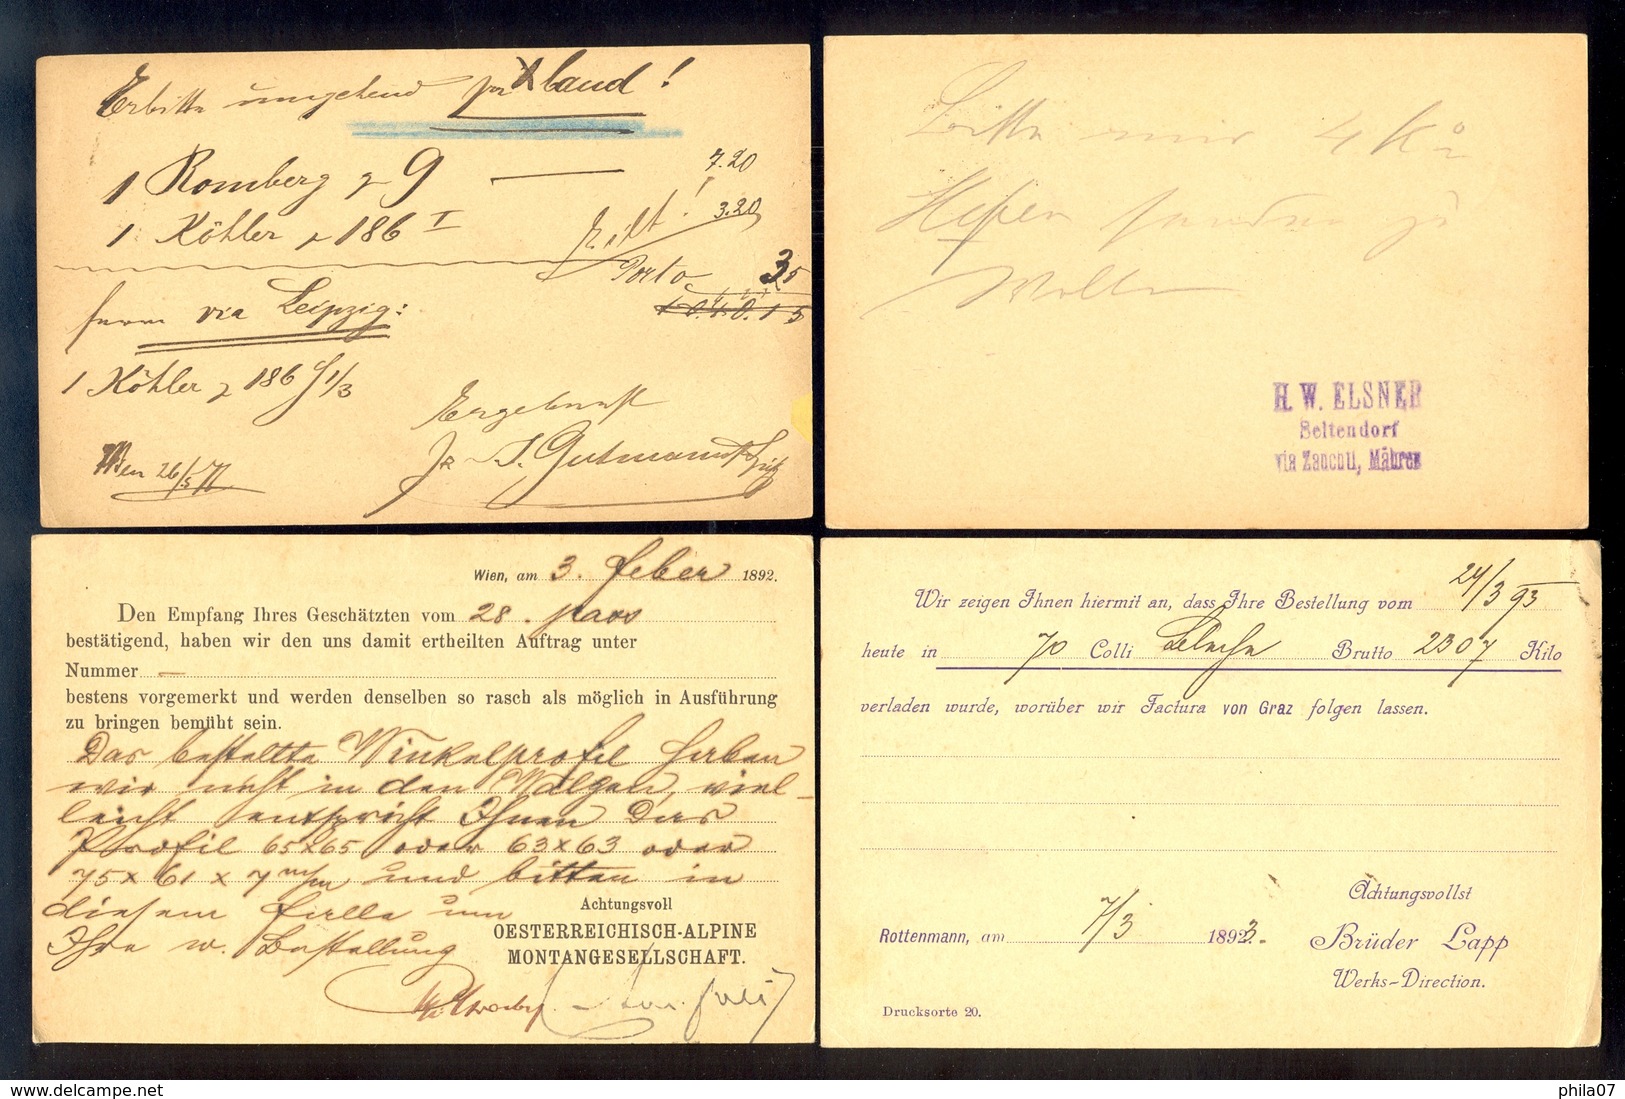 Erbitte umgehend per Xband!
1 Romberg 9 — 7.20
1 Köhler 186 I 3.20
Eilt!
Porto 35
via Leipzig:
1 Köhler 186 1/3
Ergebenst
Gutmann
Wien 26/5
Bitte mir 4 Ko
Hefen senden zu
Wollen
H. W. ELSNER
Seitendorf
via Zauchtl, Mähren
Wien, am 3. Feber 1892.
Den Empfang Ihres Geschätzten vom 28. paos
bestätigend, haben wir den uns damit ertheilten Auftrag unter
Nummer —
bestens vorgemerkt und werden denselben so rasch als möglich in Ausführung
zu bringen bemüht sein.
Das bestellte Winkelprofil haben
wir nicht in den Walzen, viel-
leicht entspricht Ihnen das
Profil 65x65 oder 63x63 oder
75x61x7 m/m und bitten in
diesem Falle um
Ihre w. Bestellung
Achtungsvoll
OESTERREICHISCH-ALPINE
MONTANGESELLSCHAFT.
Wir zeigen Ihnen hiermit an, dass Ihre Bestellung vom 24/3 93
heute in 70 Colli Bleche Brutto 2307 Kilo
verladen wurde, worüber wir Factura von Graz folgen lassen.
Achtungsvollst
Rottenmann, am 7/3 1893.
Brüder Lapp
Werks-Direction.
Drucksorte 20.
phila07